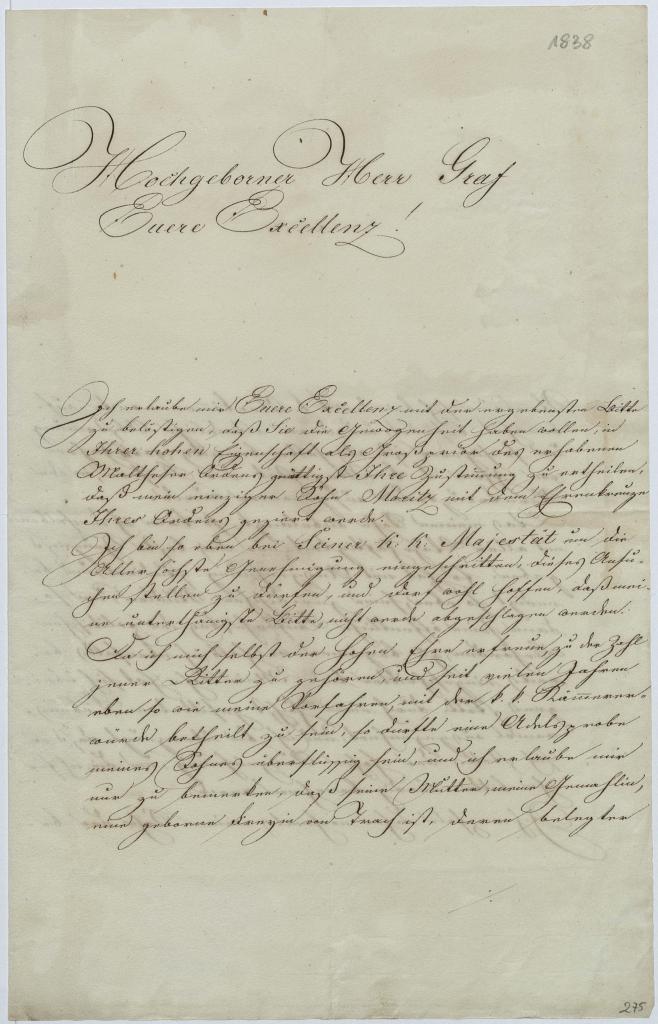 1838
Hochgeborner Herr Graf
Euere Excellenz!
Ich erlaube mir Euere Excellenz mit der ergebensten Bitte
zu belästigen, daß Sie die Gewogenheit haben wollen, in
Ihrer hohen Eigenschaft als Großprior des erhabenen
Maltheser Ordens gütigst Ihre Zustimmung zu ertheilen,
daß mein einziger Sohn Moritz mit dem Ehrenkreuze
Ihres Ordens geziert werde.
Ich bin so eben bei Seiner k: k: Majestät um die
Allerhöchste Genehmigung eingeschritten, dieses Ansu-
chen stellen zu dürfen, und darf wohl hoffen, daß mei-
ne unterthänigste Bitte nicht werde abgeschlagen werden.
Da ich mich selbst der hohen Ehre erfreue, zu der Zahl
jener Ritter zu gehören, und seit vielen Jahren
eben so wie meine Vorfahren mit der k. k. Kämmerer-
würde betheilt zu sein, so dürfte eine Adelsprobe
meines Sohnes überflüssig sein, und ich erlaube mir
nur zu bemerken, daß seine Mutter, meine Gemahlin,
eine geborne Freyin von Trach ist, deren belegter
275